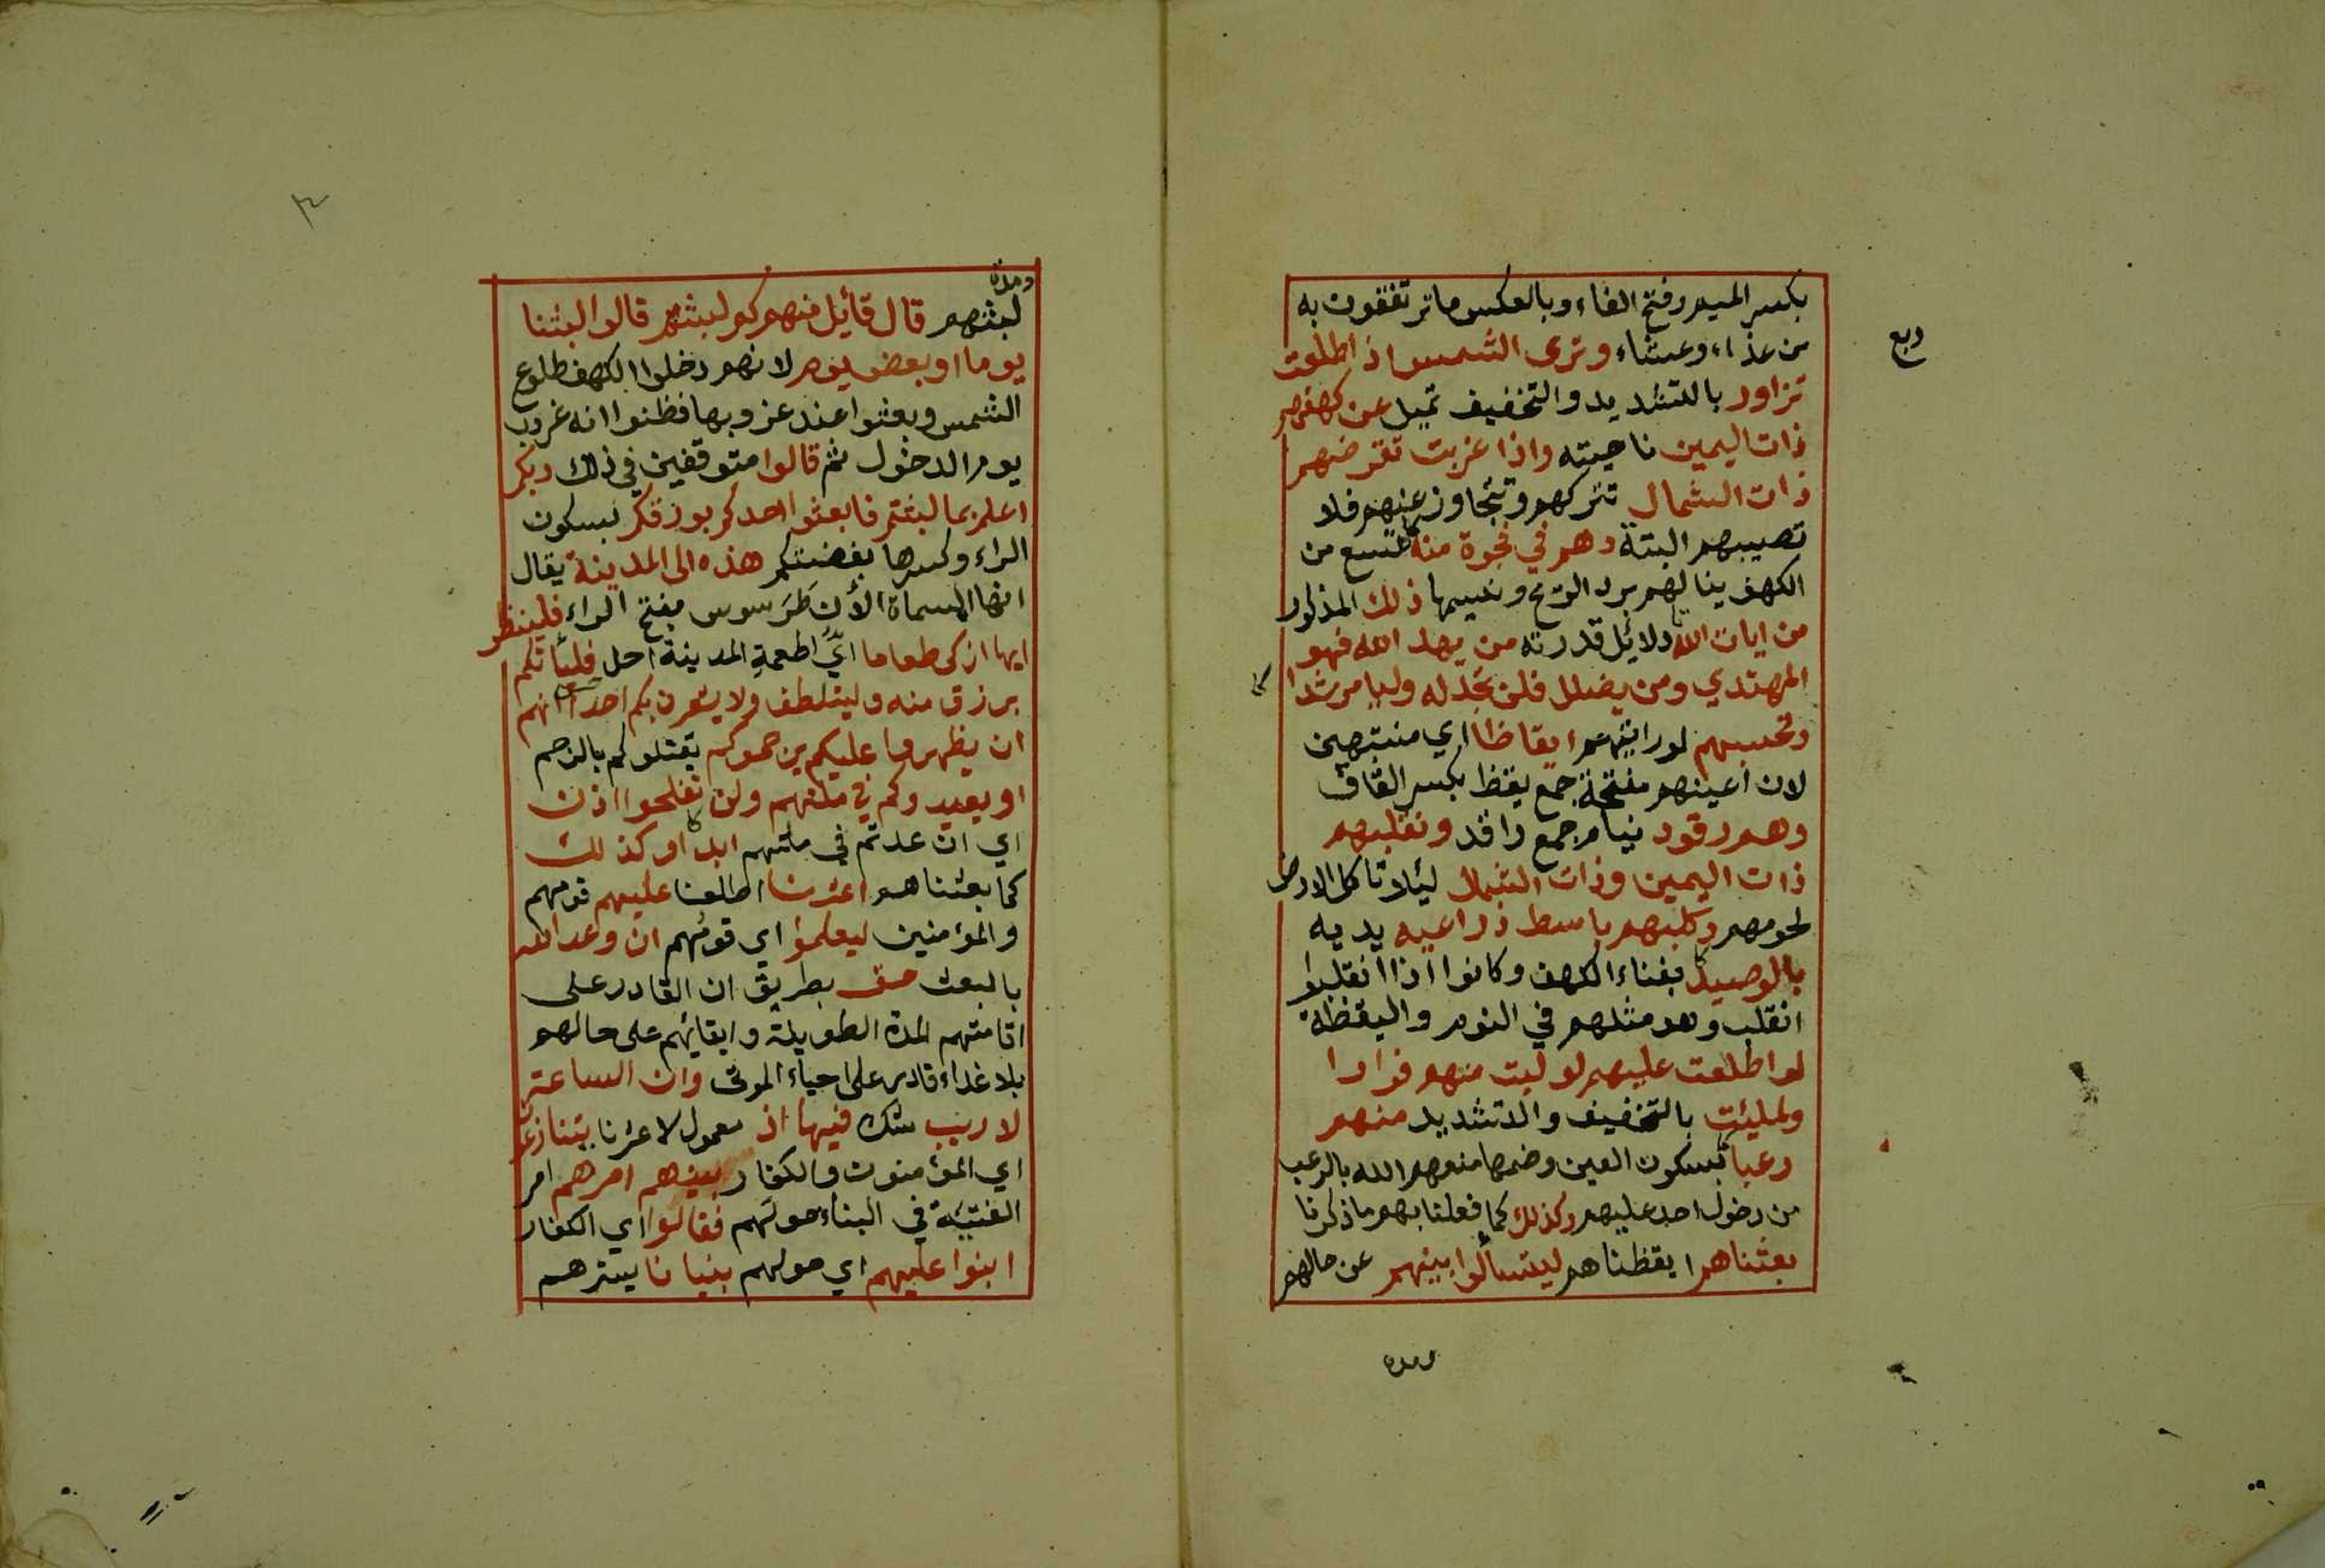 بكسر الميم وفتح الفاء وبالعكس ما ترتفقون به
ربع
من غذاء وعشاء وترى الشمس اذا طلعت
تزاور بالتشديد والتخفيف تميل عن كهفهم
ذات اليمين ناحيته واذا غربت تقرضهم
ذات الشمال تتركهم وتتجاوز عنهم فلا
تصيبهم البتة وهم في فجوة منه متسع من
الكهف ينالهم برد الريح ونسيمها ذلك المذكور
من ايات الله دلائل قدرته من يهد الله فهو
المهتدي ومن يضلل فلن تجد له وليا مرشدا
وتحسبهم لو رايتهم ايقاظا اي منتبهين
لان اعينهم مفتحة جمع يقظ بكسر القاف
وهم رقود نيام جمع راقد ونقلبهم
ذات اليمين وذات الشمال لئلا تاكل الارض
لحومهم وكلبهم باسط ذراعيه يديه
بالوصيد بفناء الكهف وكانوا اذا انقلبوا
انقلب وهو مثلهم في النوم واليقظة
لو اطلعت عليهم لوليت منهم فرارا
ولملئت بالتخفيف والتشديد منهم
رعبا بسكون العين وضمها منعهم الله بالرعب
من دخول احد عليهم وكذلك كما فعلنا بهم ما ذكرنا
بعثناهم ايقظناهم ليتسألوا بينهم عن حالهم
ومدة
٣
ومدة
لبثهم قال قائل منهم كم لبثتم قالوا لبثنا
يوما او بعض يوم لانهم دخلوا الكهف طلوع
الشمس وبعثوا عند غروبها فظنوا انه غروب
يوم الدخول ثم قالوا متوقفين في ذلك ربكم
اعلم بما لبثتم فابعثوا احدكم بورقكم بسكون
الراء وكسرها بفضتكم هذه الى المدينة يقال
انها المسماة الأن طَرَسوس بفتح الراء فلينظر
ايها ازكى طعاما ايّ اطعمةِ المدينة احل فليأتكم
برزق منه وليتلطف ولا يشعرن بكم احدا انهم
ان يظهروا عليكم يرجموكم يقتلوكم بالرجم
او يعيدوكم في ملتهم ولن تفلحوا اذن
اي ان عدتم في ملتهم ابدا وكذلك
كما بعثناهم اعثرنا اطلعنا عليهم قومهم
والمؤمنين ليعلموا اي قومُهم ان وعد الله
بالبعث حق بطريق ان القادر على
اقامتهم المدة الطويلة وابقائهم على حالهم
بلا غذاء قادر على احياء الموتى وان الساعة
لا ريب شك فيها اذ معمول لاعثرنا يتنازعون
اي المؤمنون والكفار بينهم امرهم امر
الفتيَة في البناء حولهم فقالوا اي الكفار
ابنوا عليهم اي حولهم بنيانا يسترهم